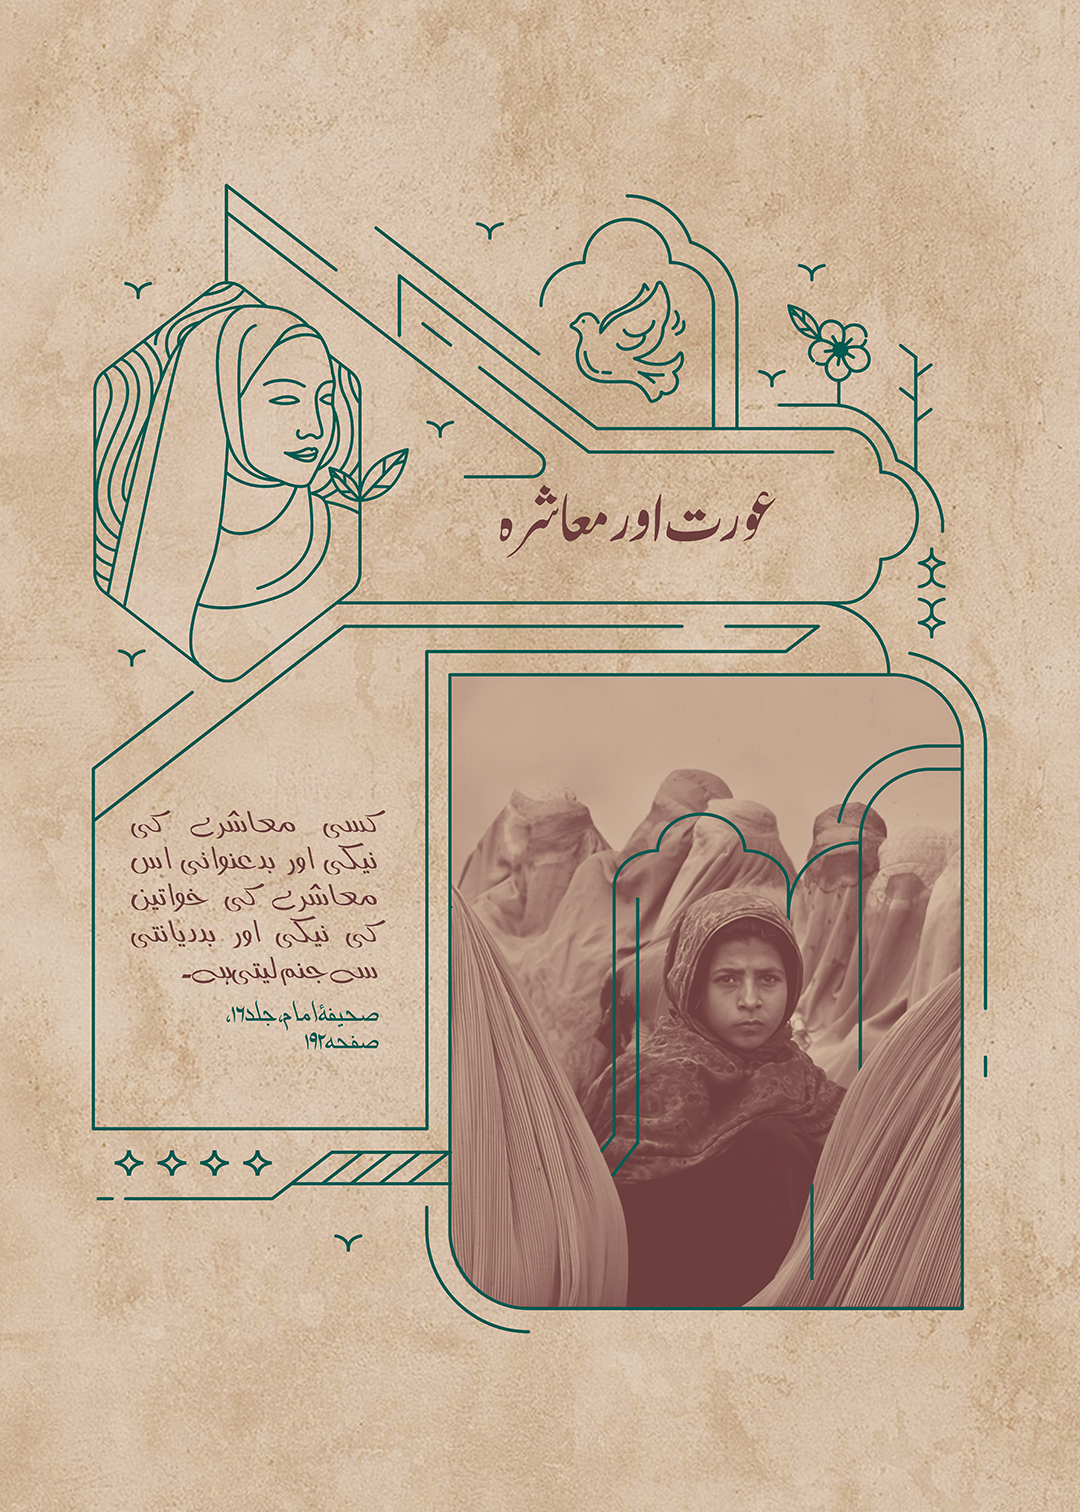 عورت اور معاشرہ
کسی معاشرے کی
نیکی اور بدعنوانی اس
معاشرے کی خواتین
کی نیکی اور بددیانتی
سے جنم لیتی ہے۔
صحیفۂ امام، جلد ۱۶،
صفحہ ۱۹۲